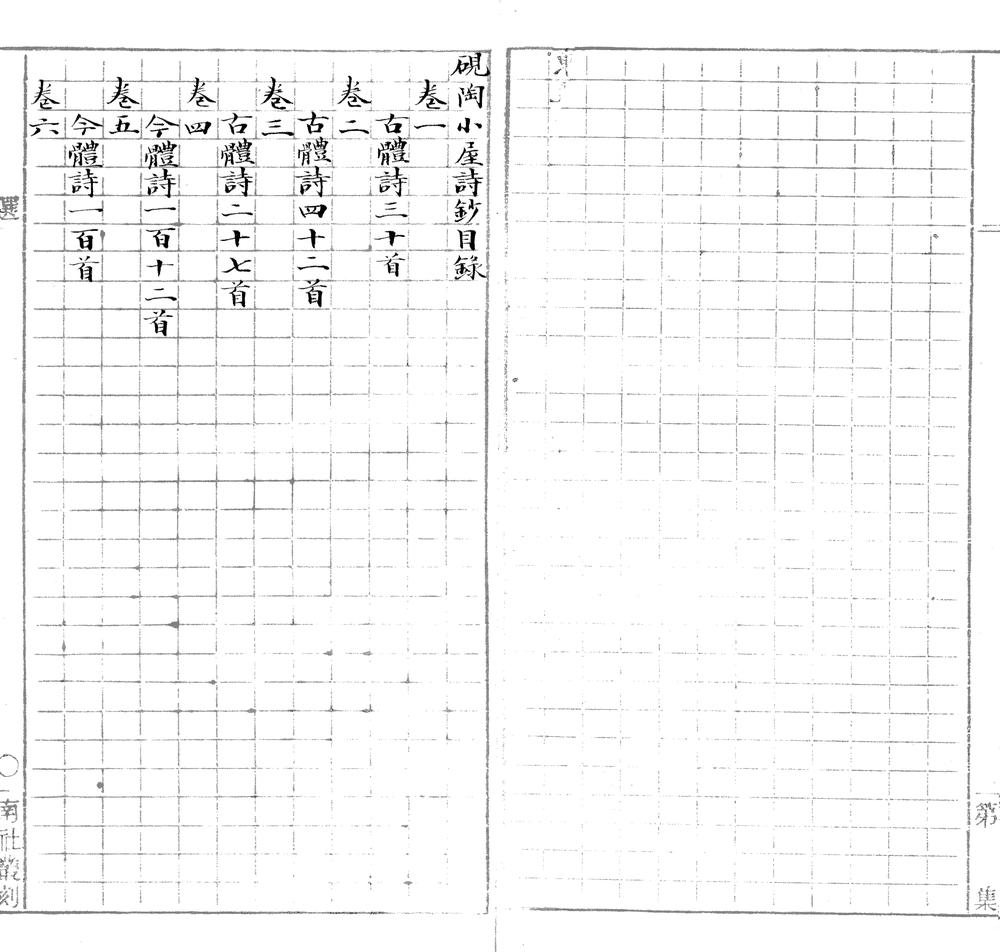 硯陶小屋詩鈔目錄
卷一
古體詩三十首
卷二
古體詩四十二首
卷三
古體詩二十七首
卷四
今體詩一百十二首
卷五
今體詩一百首
卷六
選
南社叢刻
第
集